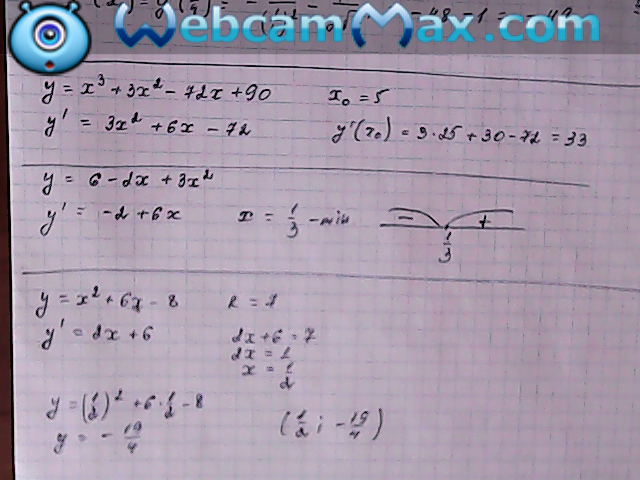 WebcamMax.com
y = x³ + 3x² - 72x + 90    x₀ = 5
y' = 3x² + 6x - 72    y'(x₀) = 3·25 + 30 - 72 = 33
y = 6 - 2x + 3x²
y' = -2 + 6x    x = 1/3 - min    - +
1/3
y = x² + 6x - 8
y' = 2x + 6    2x + 6 = 7
x = 1/2
y = (1/2)² + 6·1/2 - 8
y = -19/4    (1/2 ; -19/4)